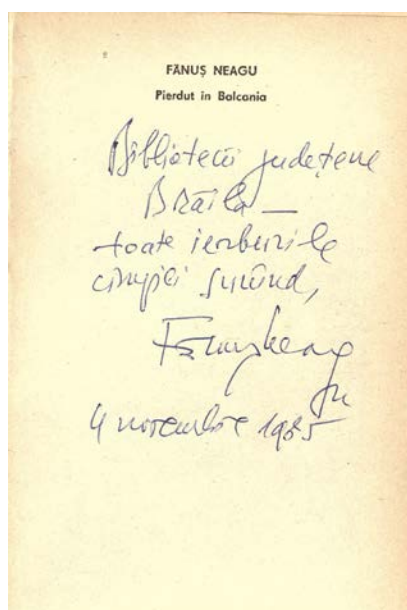 FĂNUȘ NEAGU
Pierdut în Balcania
Bibliotecii județene
Brăila —
toate ierburile
cîmpiei surîzînd,
Fănuș Neagu
4 noiembrie 1985